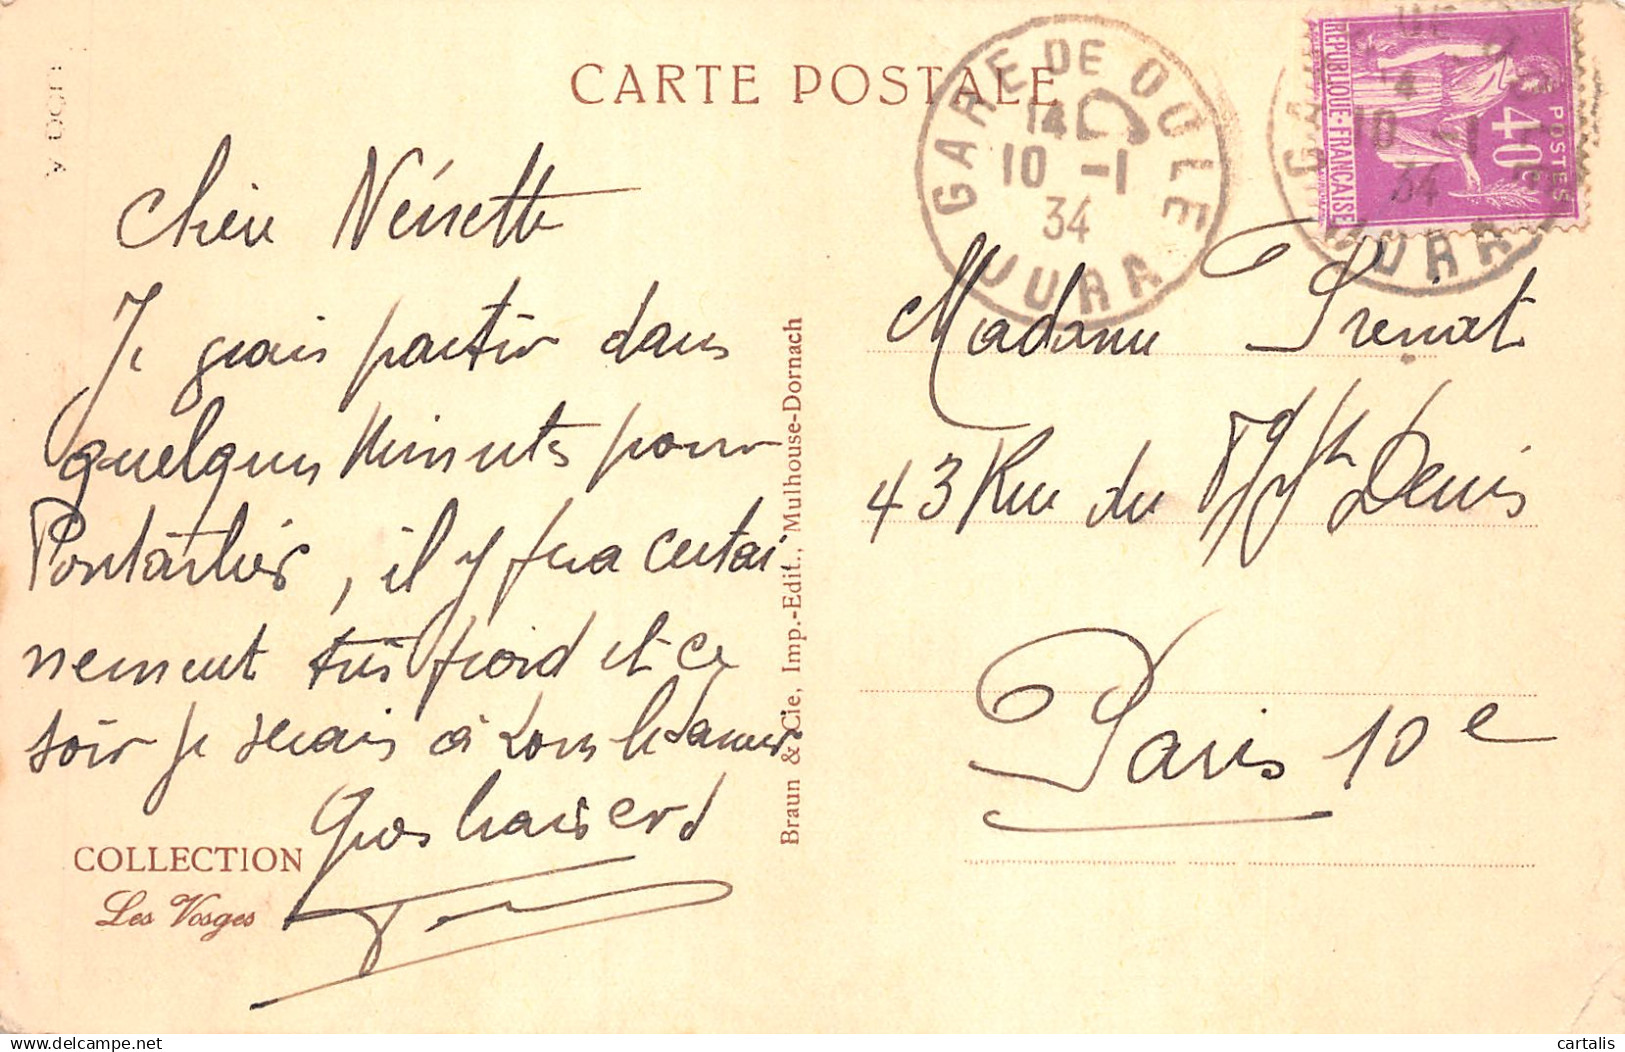 CARTE POSTALE
GARE DE DOLE
14
10 -1
34
JURA
REPUBLIQUE-FRANCAISE
POSTES
40c
10 -1
34
JURA
Chère Nénette
Je vais partir dans
quelques minutes pour
Pontarlier, il y fera certai
nement très froid et ce
soir je serais à Lons le Saunier
Gros baiser
COLLECTION
Les Vosges
Braun & Cie, Imp.-Edit., Mulhouse-Dornach
Madame
43 Rue du Fg St Denis
Paris 10e
cartalis